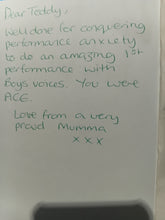 Dear Teddy,
Well done for conquering
performance anxiety
to do an amazing 1st
performance with
Boys voices. You were
ACE.
Love from a very
proud Mumma
x x x